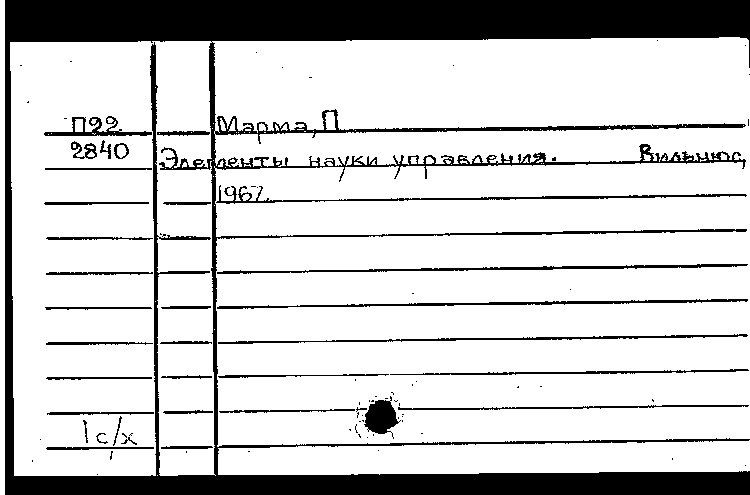 П22 Марма, П
2840 Элементы науки управления. Вильнюс,
1967.
1 с/х